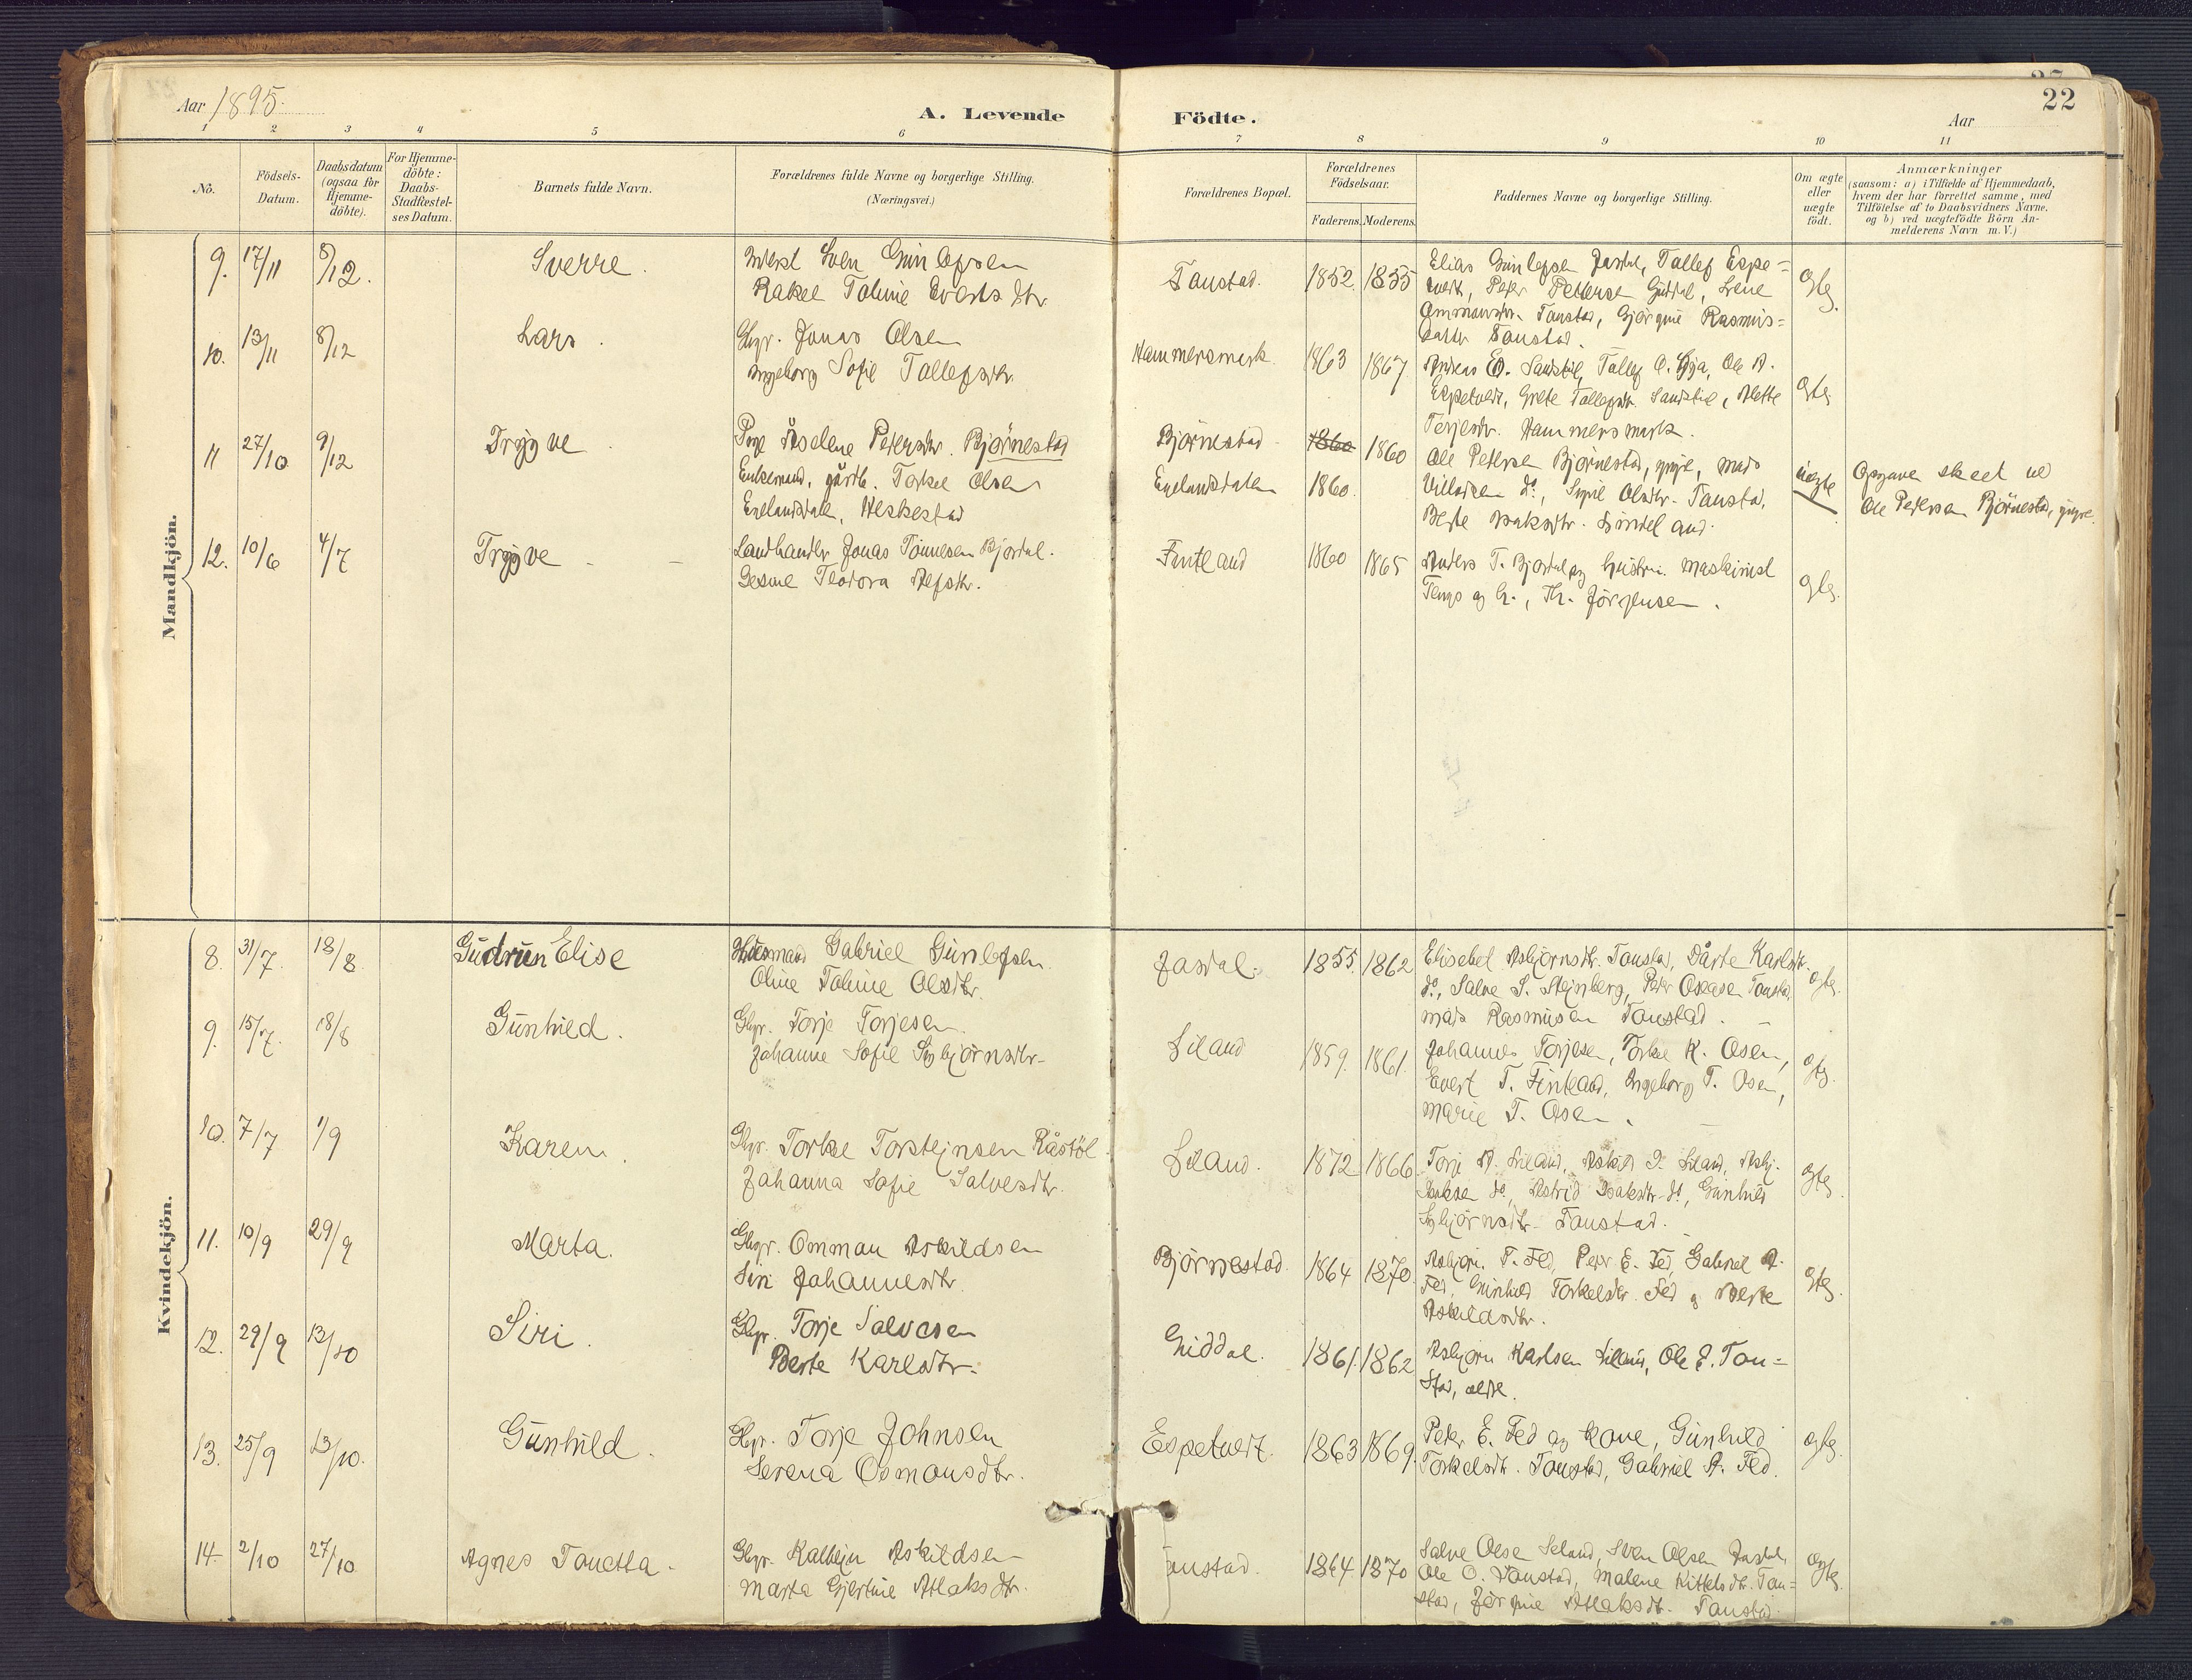 Aar 1895.
A. Levende Födte.
Aar
22
1 2 3 4 5 6 7 8 9 10 11
No.
Födsels-
Datum.
Daabsdatum
(ogsaa for
Hjemme-
döbte).
For Hjemme-
döbte:
Daabs-
Stadfæstel-
ses Datum.
Barnets fulde Navn.
Forældrenes fulde Navne og borgerlige Stilling.
(Næringsvei.)
Forældrenes Bopæl.
Forældrenes
Födselsaar.
Faderens. Moderens.
Faddernes Navne og borgerlige Stilling.
Om ægte
eller
uægte
födt.
Anmærkninger
(saasom: a) i Tilfælde af Hjemmedaab,
hvem der har forrettet samme, med
Tilföielse af to Daabsvidners Navne.
og b) ved uægtefödte Börn An-
melderens Navn m. V.)
Mandkjön.
9. 17/11 8/12. Sverre.
Sven Gunlefsen
Rakel Tomine Evertsdtr.
Faustad. 1852. 1855
Elias Gunlefsen Jasdal, Tallef Espe=
tvedt, Peter Petersen Guddal, Lene
Ommunsdtr. Taustad, Gjørgine Rasmus=
datter Taustad.
Ægte.
10. 13/11 8/12 Lars.
Gbgr. Jonas Olsen
Ingeborg Sofie Tallefsdtr.
Hammersmark 1863 1867
Andreas O. Sandstøl, Tallef O. Eija, Ole A.
Espetvedt, Grete Tallefsdtr. Sandstøl, Mette
Terjesdtr. Hammersmark.
Ægte
11 27/10 9/12 Trygve
Pige Aselene Petersdtr. Bjørnestad
Enkemand, gårdb. Torkel Olsen
Egelandsdalen, Heskestad
Bjørnestad
Egelandsdalen
1860 1860
1860.
Ole Petersen Bjørnestad, yngre, Mads
Villadsen do, Sigrie Olsdtr. Taustad,
Berte Isaksdtr. Lindeland.
uægte
Opgave skeet ved
Ole Petersen Bjørnestad, yngre.
12. 10/6 4/7 Trygve
Landhandler Jonas Tønnesen Bjordal.
Gesine Teodora
Fintland 1860 1865
Anders T. Bjordal og hustru. Maskinist
Tengs og h., Th. Jörgensen.
Ægte.
Kvindekjön.
8. 31/7. 18/8 Gudrun Elise
Husmand Gabriel Gunlefsen.
Oline Tomine Olsdtr.
Jasdal. 1855. 1862
Elisabet Asbjørnsdtr. Taustad, Dårte Karlsdtr.
do, Salve S. Steinberg, Peter Aasen Taustad,
Mads Rasmusen Taustad.
Ægte.
9. 15/7. 18/8 Gunhild.
Gbgr. Torje Torjesen.
Johanne Sofie Asbjørnsdtr.
Liland 1859. 1861.
Johannes Torjesen, Torkel K. Osen,
Evert T. Fintland, Ingeborg T. Osen,
Marie T. Osen.
Ægte.
10. 7/7 1/9 Karen.
Gbgr. Torkel Torsteinsen Råstöl
Johanna Sofie Salvesdtr.
Liland. 1872 1866
Torje A. Liland, Askild I. Liland, Asbj.
Isaksen do, Astrid Isaksdtr. do, Gunhild
Asbjørnsdtr. Taustad.
Ægte.
11. 10/9 29/9 Marta.
Gbgr. Omman Askildsen
Siri Johannesdtr.
Bjørnestad. 1864 1870.
Asbjørn T. Fed, Peter E. Fed, Gabriel A.
Fed, Gunhild Torkelsdtr. Fed og Berte
Askildsdtr.
Ægte.
12. 29/9 13/10 Siri.
Gbgr. Torje Salvesen
Berte Karlsdtr.
Guddal. 1861. 1862
Asbjørn Karlsen Liland, Ole E. Tau=
stad, ældre.
13. 25/9 13/10. Gunhild.
Gbgr. Torje Johnsen
Serena Osmonsdtr.
Espetvedt. 1863 1869.
Peter E. Fed og kone, Gunhild
Torkelsdtr. Taustad, Gabriel A. Fed.
Ægte.
14. 2/10 27/10 Agnes Tonetta.
Gbgr. Kallejn Askildsen
Marta Gjertine Atlaksdtr.
Taustad. 1864 1870
Salve Olsen Liland, Sven Olsen Jasdal,
Ole O. Taustad, Malene Kittelsdtr. Tau=
stad, Jörgine Atlaksdtr. Taustad.
Ægte.